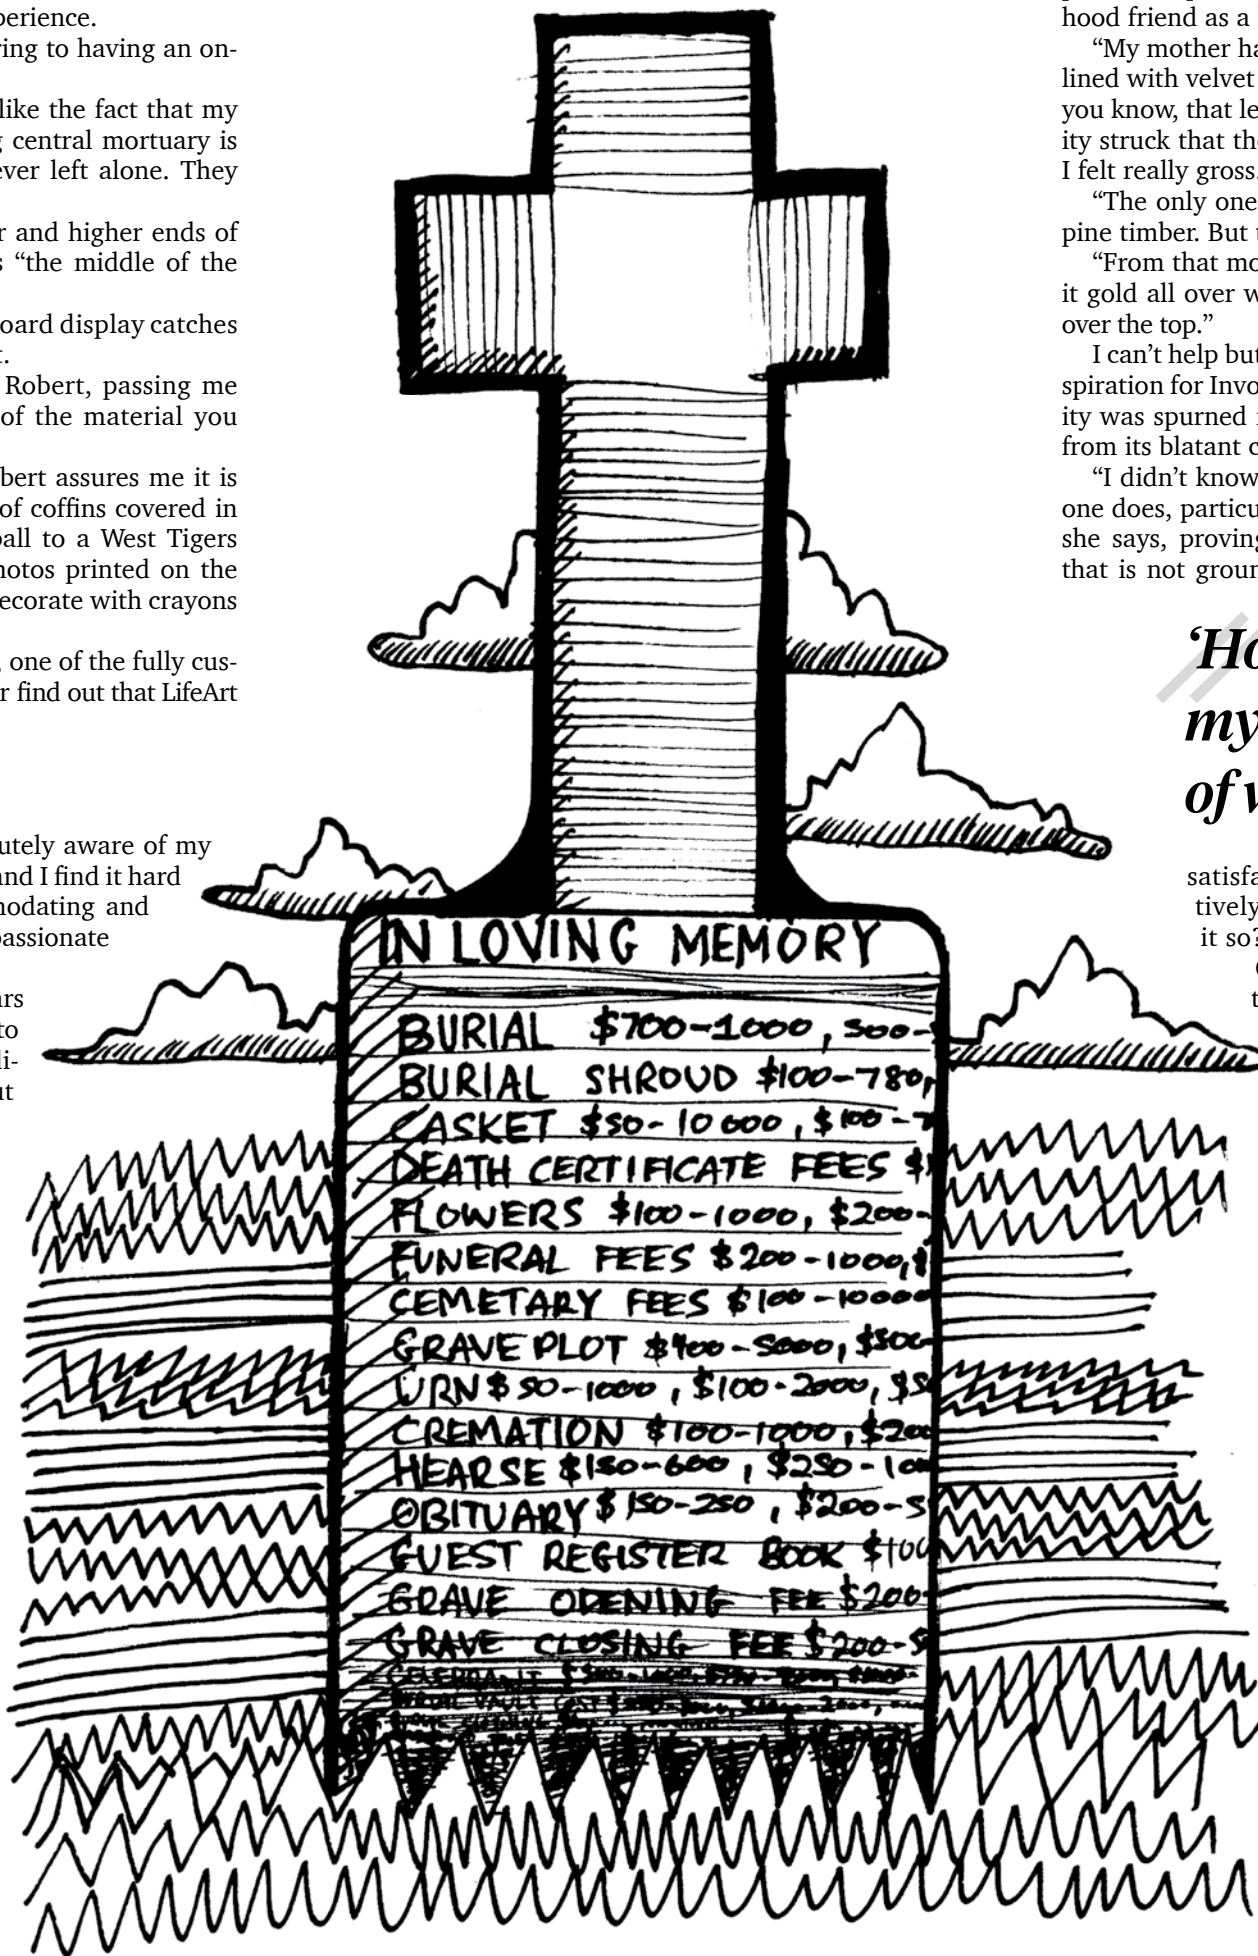 perience.
ring to having an on-
like the fact that my
g central mortuary is
ever left alone. They
r and higher ends of
s “the middle of the
oard display catches
t.
Robert, passing me
of the material you
bert assures me it is
of coffins covered in
ball to a West Tigers
hotos printed on the
ecorate with crayons
, one of the fully cus-
r find out that LifeArt
utely aware of my
and I find it hard
modating and
passionate
ars
to
li-
ut
IN LOVING MEMORY
BURIAL $700-1000, 500-
BURIAL SHROUD $100-780,
CASKET $50-10000, $100-7
DEATH CERTIFICATE FEES $1
FLOWERS $100-1000, $200-
FUNERAL FEES $200-1000, $
CEMETARY FEES $100-10000
GRAVE PLOT $400-5000, $500-
URN $50-1000, $100-2000, $50
CREMATION $100-1000, $200
HEARSE $150-600, $250-100
OBITUARY $150-250, $200-5
GUEST REGISTER BOOK $100
GRAVE OPENING FEE $200-
GRAVE CLOSING FEE $200-5
CELEBRANT
BURIAL VAULT COST
hood friend as a
“My mother ha
lined with velvet
you know, that le
ity struck that the
I felt really gross.
“The only one
pine timber. But t
“From that mo
it gold all over w
over the top.”
I can’t help but
spiration for Invo
ity was spurned
from its blatant c
“I didn’t know
one does, particu
she says, proving
that is not groun
‘Ho
my
of
satisfa
tively
it so?
t